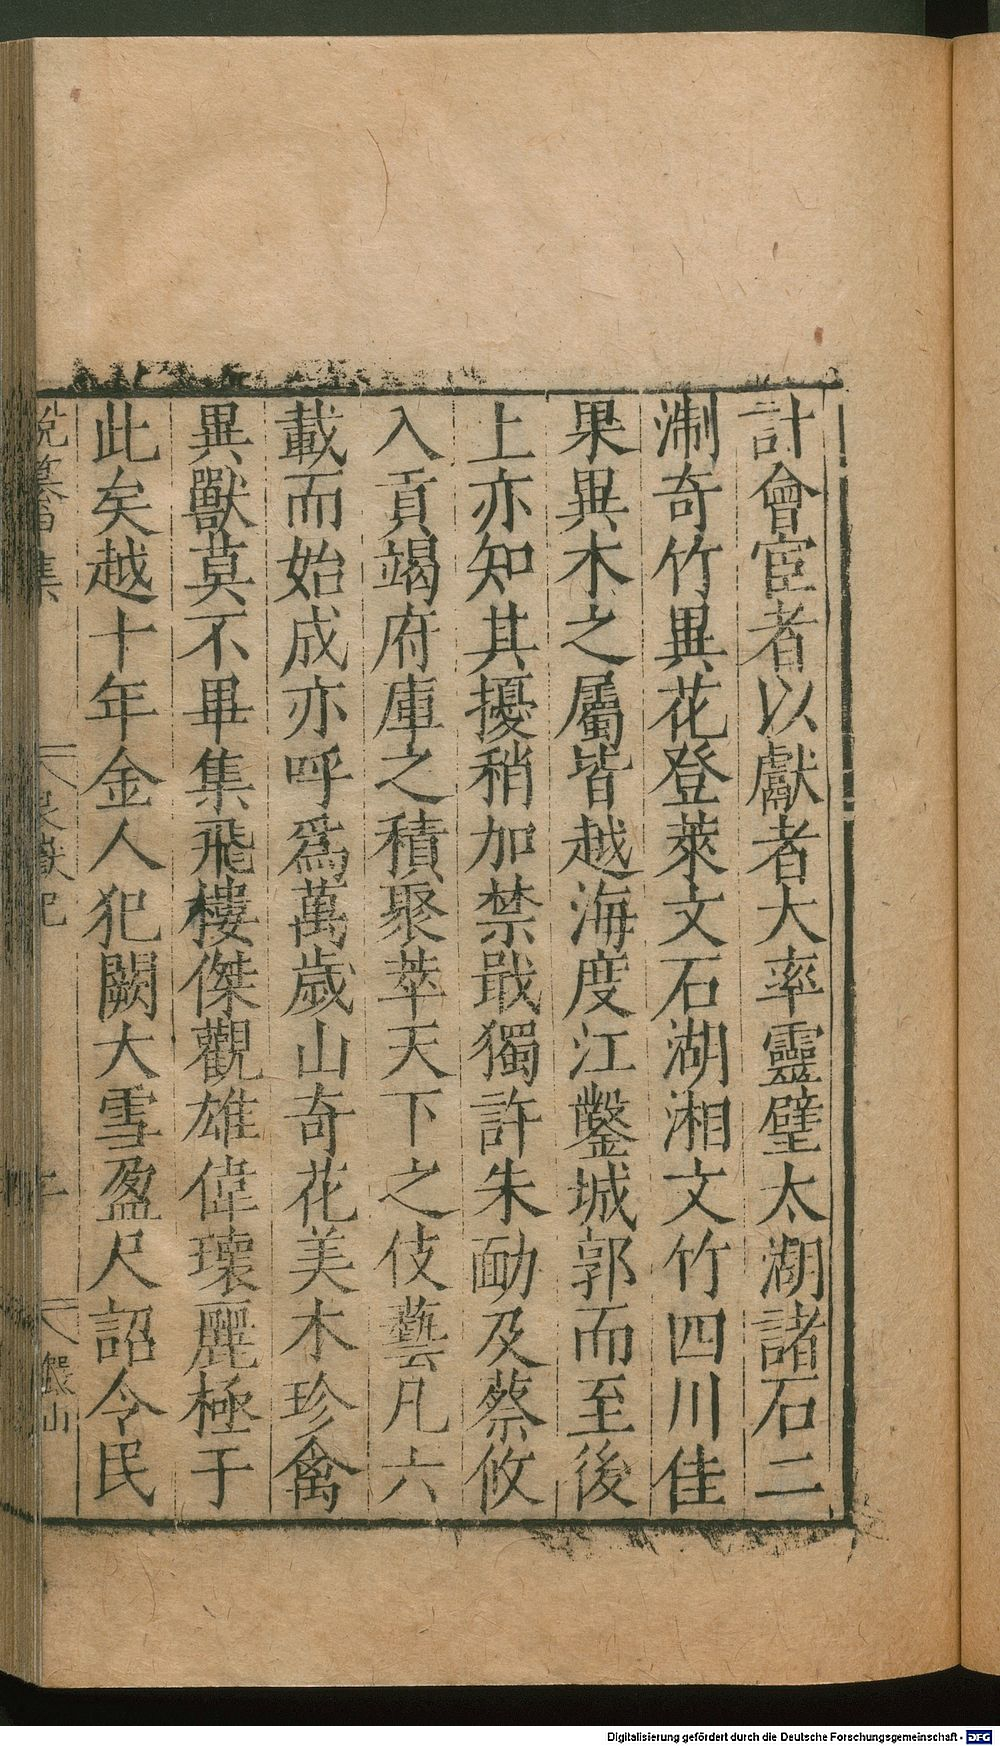 計會宦者以獻者大率靈璧太湖諸石二
淛奇竹異花登萊文石湖湘文竹四川佳
果異木之屬皆越海度江鑿城郭而至後
上亦知其擾稍加禁戢獨許朱勔及蔡攸
入貢竭府庫之積聚萃天下之伎藝凡六
載而始成亦呼爲萬歲山奇花美木珍禽
異獸莫不畢集飛樓傑觀雄偉瓌麗極于
此矣越十年金人犯闕大雪盈尺詔令民
集
山
Digitalisierung gefördert durch die Deutsche Forschungsgemeinschaft - DFG